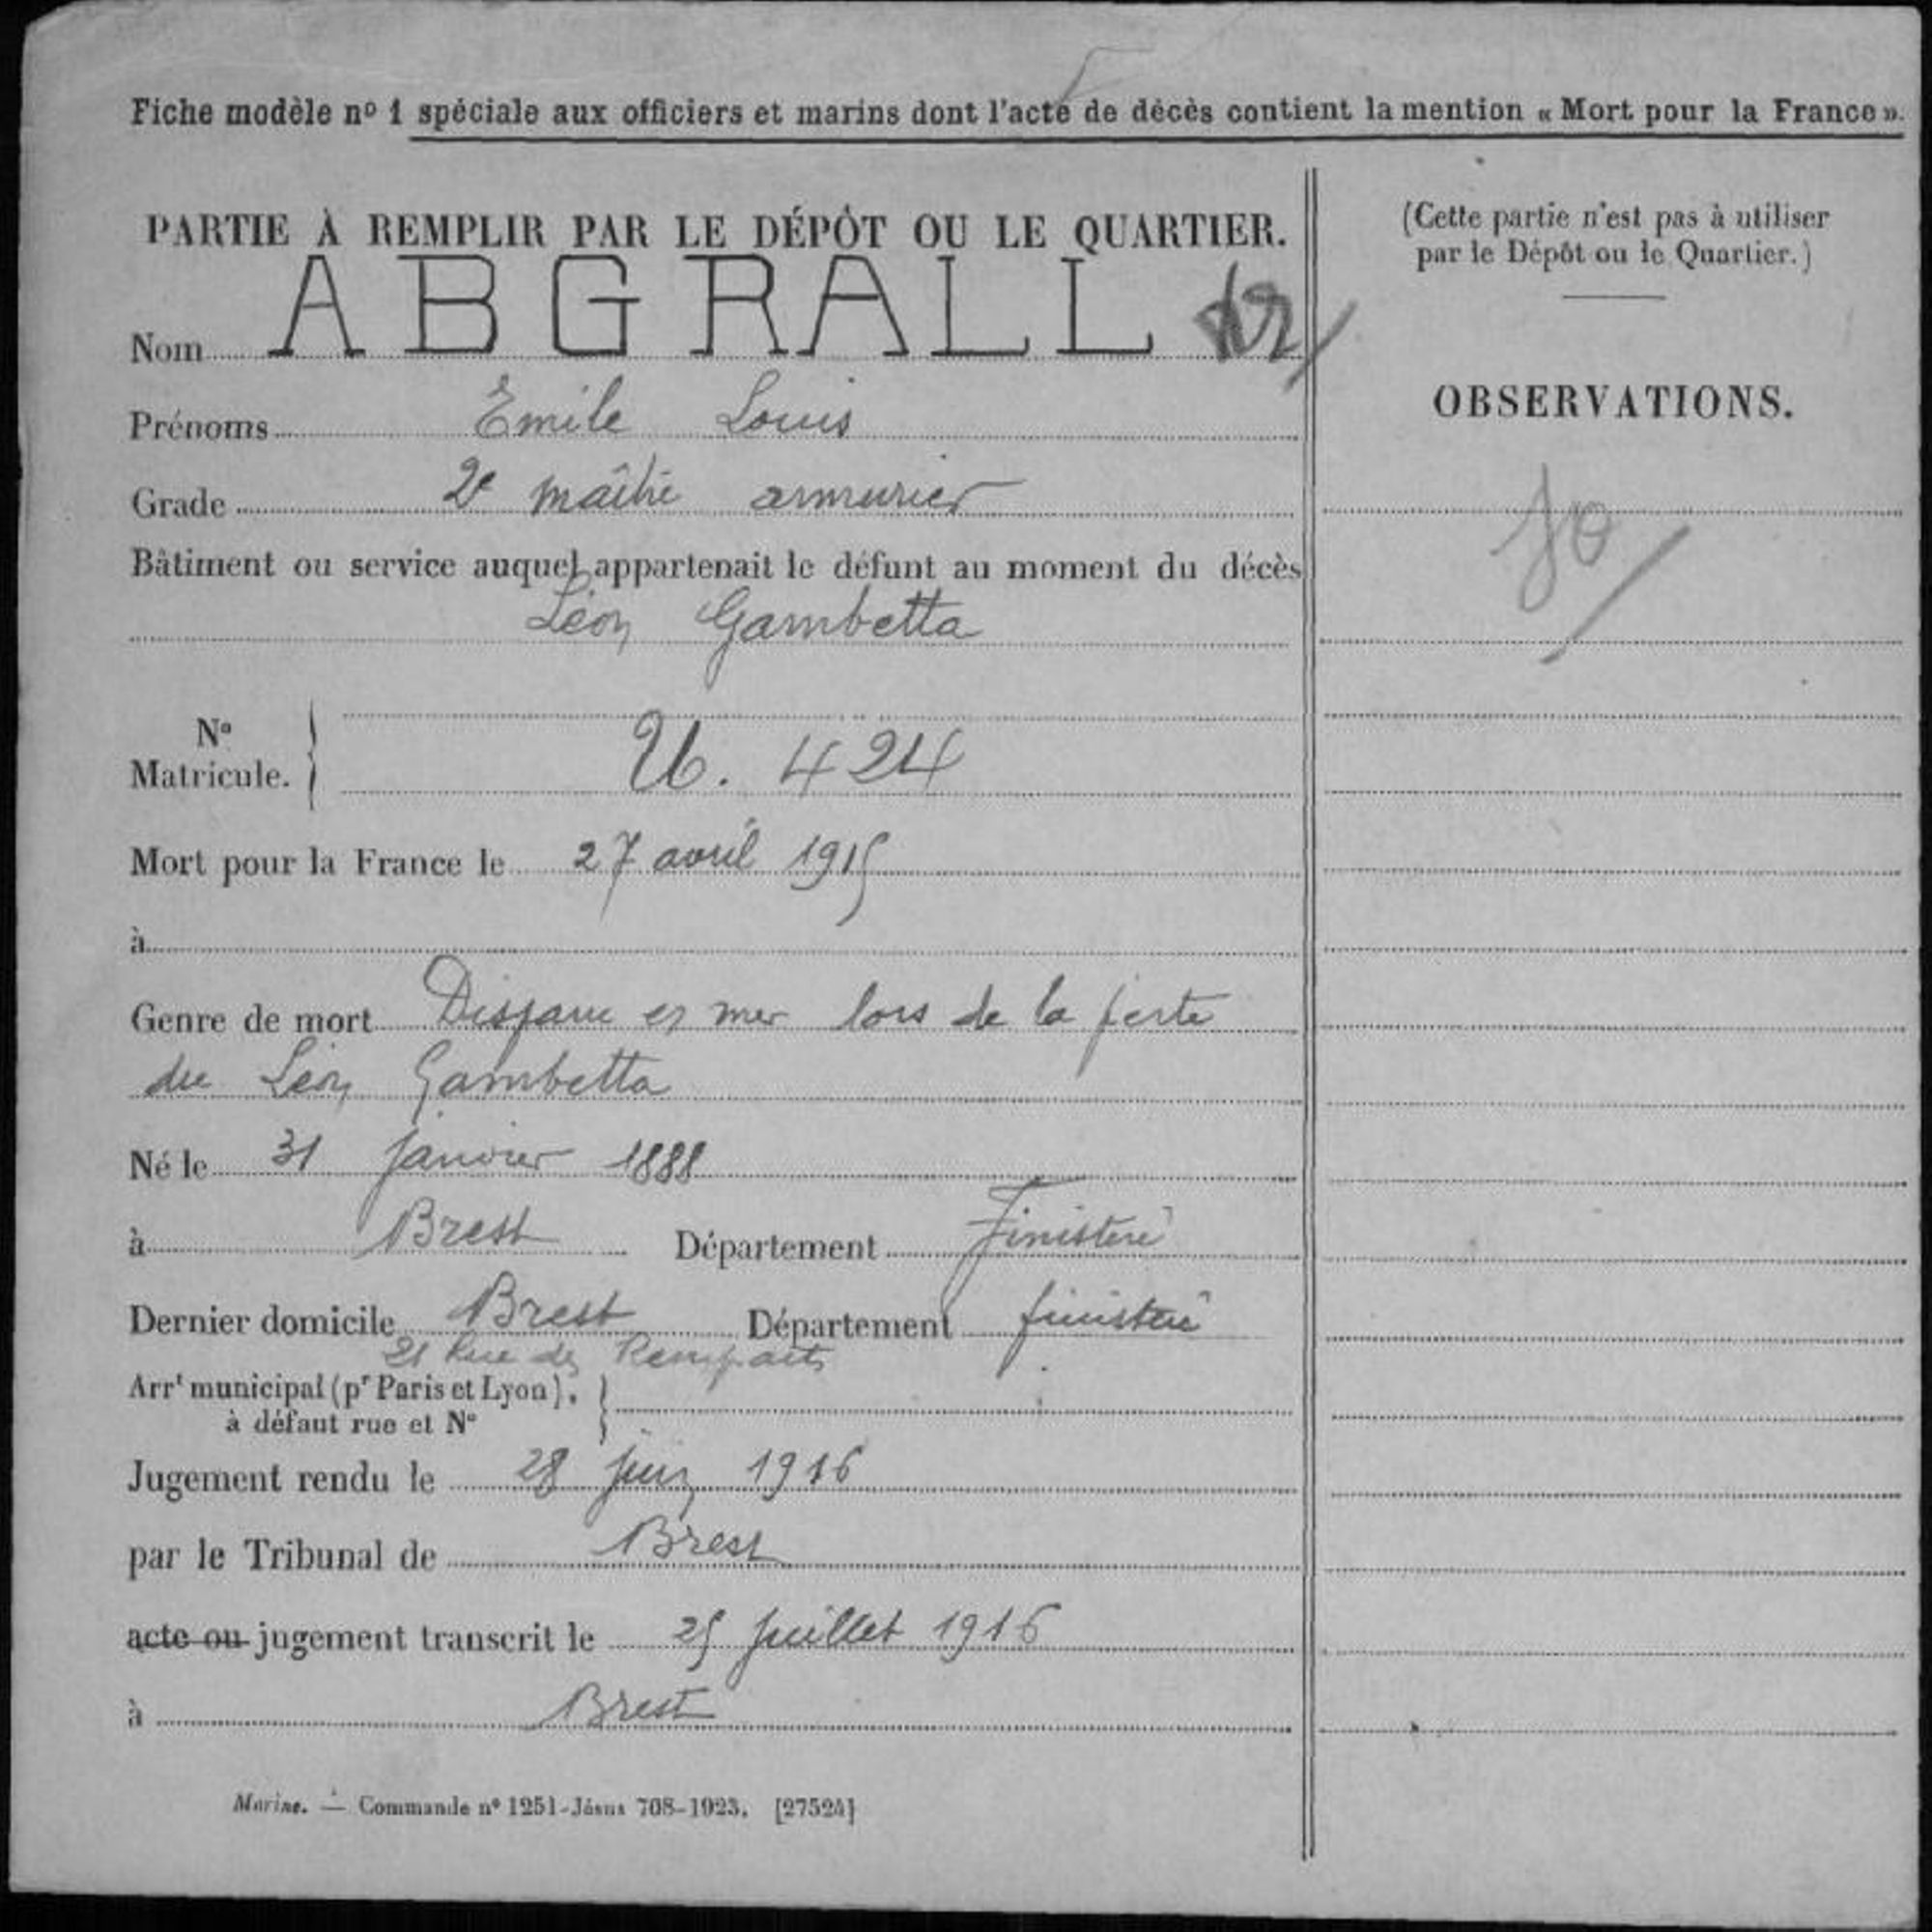 Fiche modèle nº 1 spéciale aux officiers et marins dont l'acte de décès contient la mention « Mort pour la France ».
PARTIE À REMPLIR PAR LE DÉPÔT OU LE QUARTIER.
Nom ABGRALL
Prénoms Emile Louis
Grade 2e maître armurier
Bâtiment ou service auquel appartenait le défunt au moment du décès
Léon Gambetta
Nº
Matricule. U. 424
Mort pour la France le 27 avril 1915
à
Genre de mort Disparu en mer lors de la perte
du Léon Gambetta
Né le 31 janvier 1888
à Brest Département Finistère
Dernier domicile Brest Département finistère
21 Rue des Remparts
Arrt municipal (pr Paris et Lyon),
à défaut rue et Nº
Jugement rendu le 28 juin 1916
par le Tribunal de Brest
acte ou jugement transcrit le 25 juillet 1916
à Brest
Marine. — Commande nº 1251-Jésus 708-1923. [27524]
(Cette partie n'est pas à utiliser
par le Dépôt ou le Quartier.)
OBSERVATIONS.